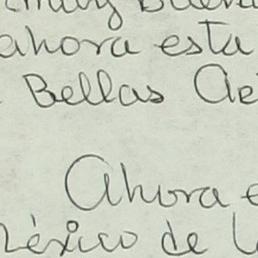 ahora esta
Bellas
Ahora
México de